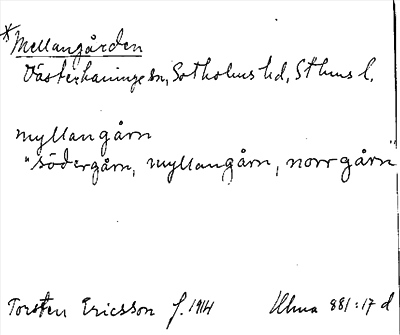 *Mellangården
Västerhaninge sn, Sotholms hd, Sthms l.
myllangårn
"södergårn, myllangårn, norrgårn"
Torsten Ericsson f. 1914 Ulma 881:17 d